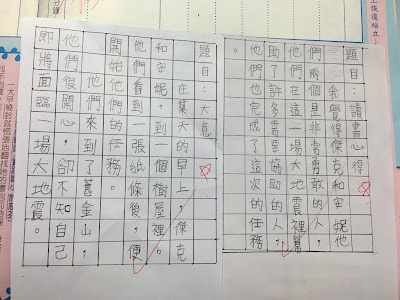 題目：讀書心得
我覺得傑克和安妮他
們兩個是非常勇敢的人，
他們大地震裡，幫
助了許多需要協助的人，
他們也完成了這次的任務
。
題目：大意
在某天的早上，傑克
和安妮，到一個樹屋裡。
他們看到一張紙條後，便
開始他們的任務。
他們來到了舊金山，
他們很開心，卻不知自己
即將面臨一場大地震。